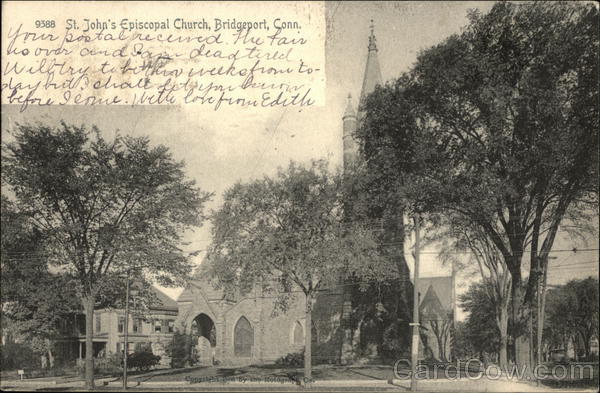 9388 St. John's Episcopal Church, Bridgeport, Conn.
Your postal received. The Fair
is over and I am dead tired
Will try to be two weeks from to-
day but I shall let you know
before I come. With love from Edith
Copyright by the Rotograph Co.
CardCow.com